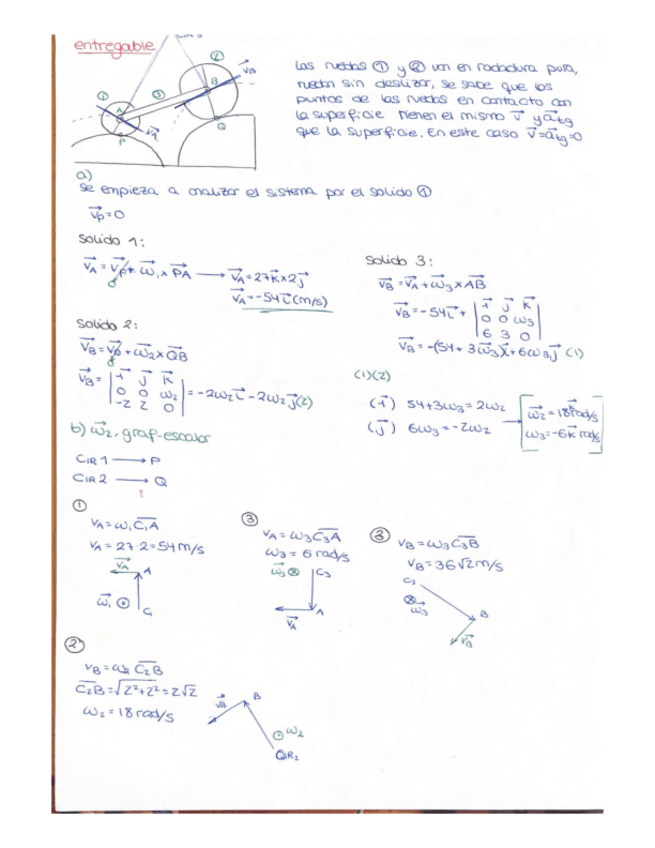 entregable
① ② ③ A B P Q
Las ruedas ① y ② van en rodadura pura,
ruedan sin deslizar, se sabe que los
puntos de las ruedas en contacto con
la superficie tienen el mismo v⃗ y a⃗tg
que la superficie. En este caso v⃗=a⃗tg=0
a)
se empieza a analizar el sistema por el solido ①
v⃗p=0
Solido 1:
v⃗A = v⃗p + ω⃗1 x PA⃗ ⟶ v⃗A = 27k⃗ x 2j⃗
0
v⃗A = -54i⃗ (m/s)
Solido 2:
v⃗B = v⃗p + ω⃗2 x QB⃗
0
v⃗B = | i⃗ j⃗ k⃗ |
| 0 0 ω2 | = -2ω2 i⃗ - 2ω2 j⃗ (2)
| -2 2 0 |
Solido 3:
v⃗B = v⃗A + ω⃗3 x AB⃗
v⃗B = -54i⃗ + | i⃗ j⃗ k⃗ |
| 0 0 ω3 |
| 6 3 0 |
v⃗B = -(54 + 3ω⃗3)i⃗ + 6ω3 j⃗ (1)
(1)(2)
(i⃗) 54+3ω3 = 2ω2
(j⃗) 6ω3 = -2ω2
ω⃗2 = 18k⃗ rad/s
ω⃗3 = -6k⃗ rad/s
b) ω⃗2, graf-escalar
CIR 1 ⟶ P
CIR 2 ⟶ Q
①
vA = ω1 C1A
vA = 27·2 = 54 m/s
v⃗A A
ω⃗1 ⊙ C1
③
vA = ω3 C3A
ω3 = 6 rad/s
ω⃗3 ⊗ C3
v⃗A A
③ vB = ω3 C3B
vB = 36√2 m/s
C3
⊗ ω⃗3 B
v⃗B
②
vB = ω2 C2B
C2B = √2²+2² = 2√2
ω2 = 18 rad/s
v⃗B B
⊙ ω2
QIR2